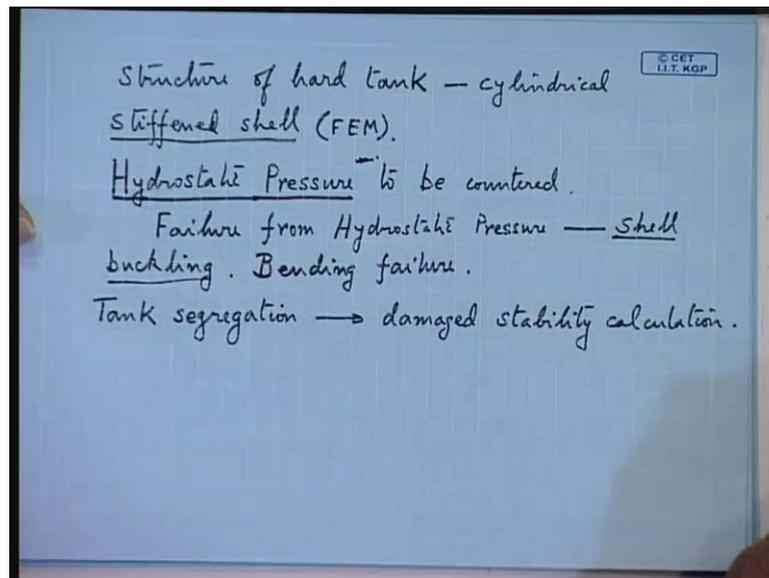 © CET
I.I.T. KGP
Structure of hard tank — cylindrical
stiffened shell (FEM).
Hydrostatic Pressure to be countered.
Failure from Hydrostatic Pressure — shell
buckling. Bending failure.
Tank segregation → damaged stability calculation.